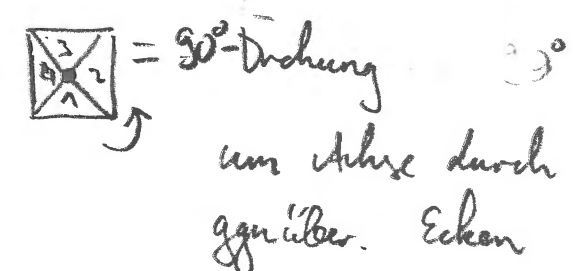 3
4 2
1
= 90°-Drehung
um Achse durch
ggnüber. Ecken